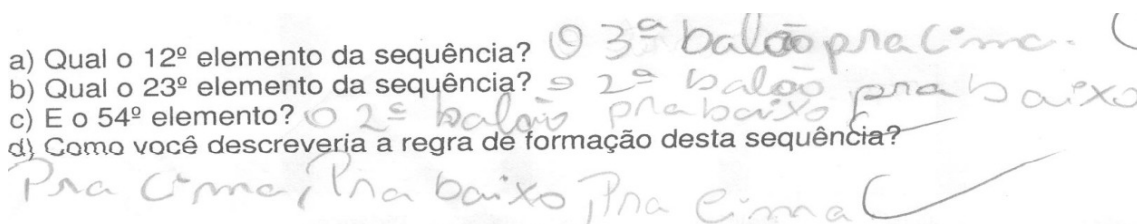 a) Qual o 12º elemento da sequência? O 3º balão pra cima.
b) Qual o 23º elemento da sequência? O 2º balão pra baixo
c) E o 54º elemento? O 2º balão pra baixo
d) Como você descreveria a regra de formação desta sequência?
Pra cima, Pra baixo, Pra cima